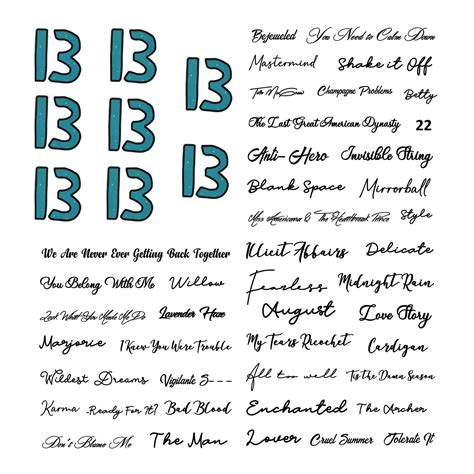 13 13
13
13 13
13
13 13
Bejeweled You Need to Calm Down
Mastermind Shake it Off
Tis Me Now Champagne Problems Betty
The Last Great American Dynasty 22
Anti-Hero Invisible String
Blank Space Mirrorball
Miss Americana & The Heartbreak Prince Style
We Are Never Ever Getting Back Together
You Belong With Me Willow
Look What You Made Me Do Lavender Haze
Marjorie I Knew You Were Trouble
Wildest Dreams Vigilante S---
Karma ..Ready For It? Bad Blood
Don't Blame Me The Man
Illicit Affairs Delicate
Fearless Midnight Rain
August Love Story
My Tears Ricochet Cardigan
All too well Tis the Damn Season
Enchanted The Archer
Lover Cruel Summer Tolerate It